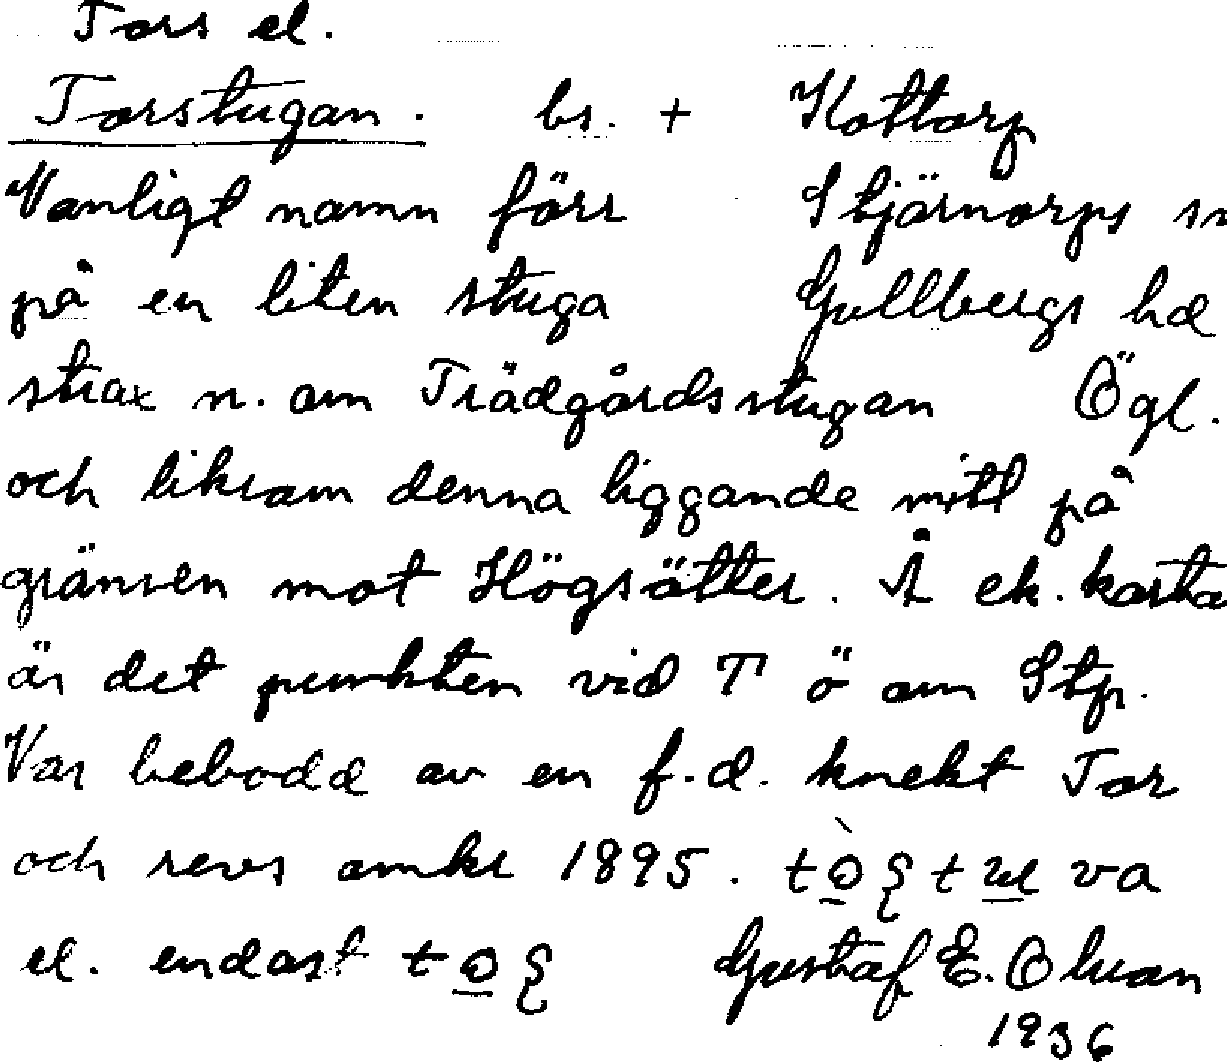 Tors el.
Torstugan. bs. + Kottorp
Vanligt namn förr Stjärnorps sn
på en liten stuga Gullbergs hd
strax n. om Trädgårdsstugan Ögl.
och liksom denna liggande mitt på
gränsen mot Högsätter. Å ek. karta
är det punkten vid T ö om Stp.
Var bebodd av en f.d. knekt Tor
och revs omkr 1895.
el. endast Gustaf E. Olson
1936